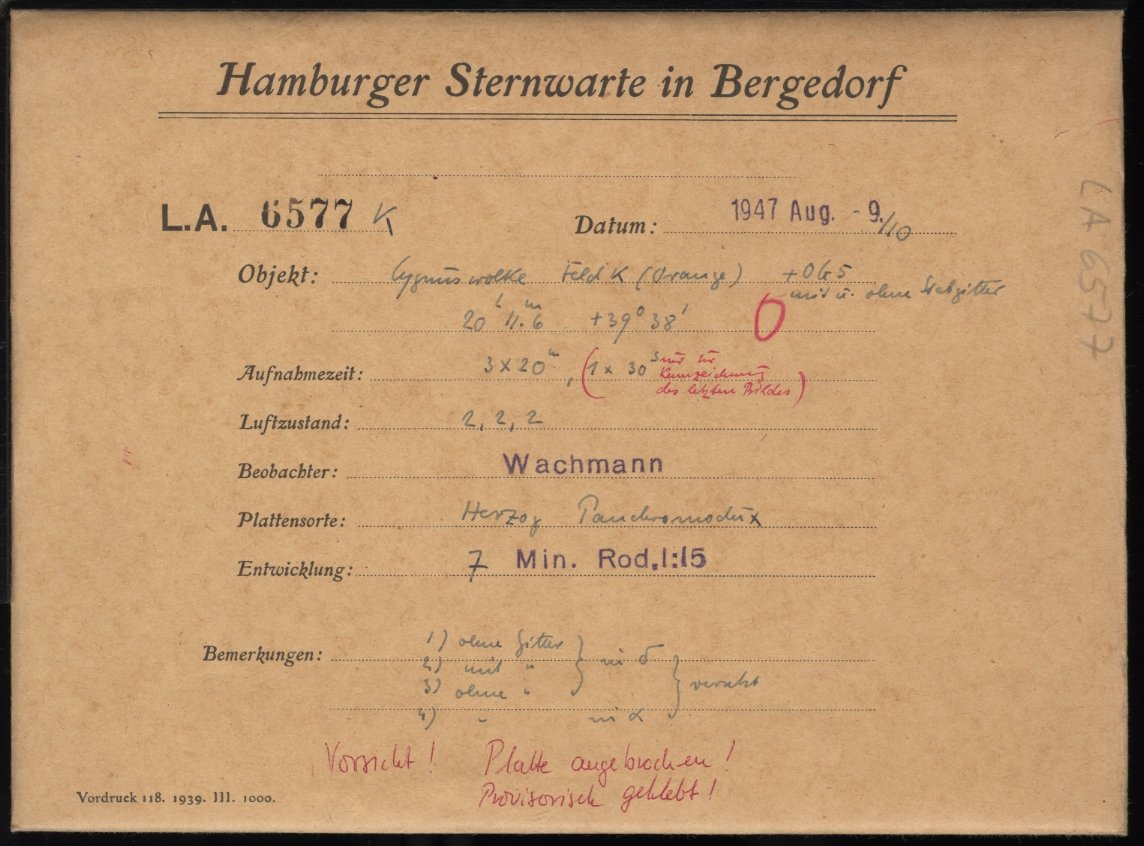 Hamburger Sternwarte in Bergedorf
L.A. 6577 K Datum: 1947 Aug. - 9./10
Objekt: Cygnuswolke Feld K (Orange) + OG5
mit u. ohne Stabgitter
20h 11.m6 +39° 38' O
Aufnahmezeit: 3 x 20m, (1 x 30s nur zur
Kennzeichnung
des letzten Bildes)
Luftzustand: 2, 2, 2
Beobachter: Wachmann
Plattensorte: Herzog Panchromodux
Entwicklung: 7 Min. Rod. 1:15
Bemerkungen: 1) ohne Gitter
2) mit " } in δ
3) ohne " } versetzt
4) " in α
Vorsicht! Platte angebrochen!
Provisorisch geklebt!
Vordruck 118. 1939. III. 1000.
LA 6577